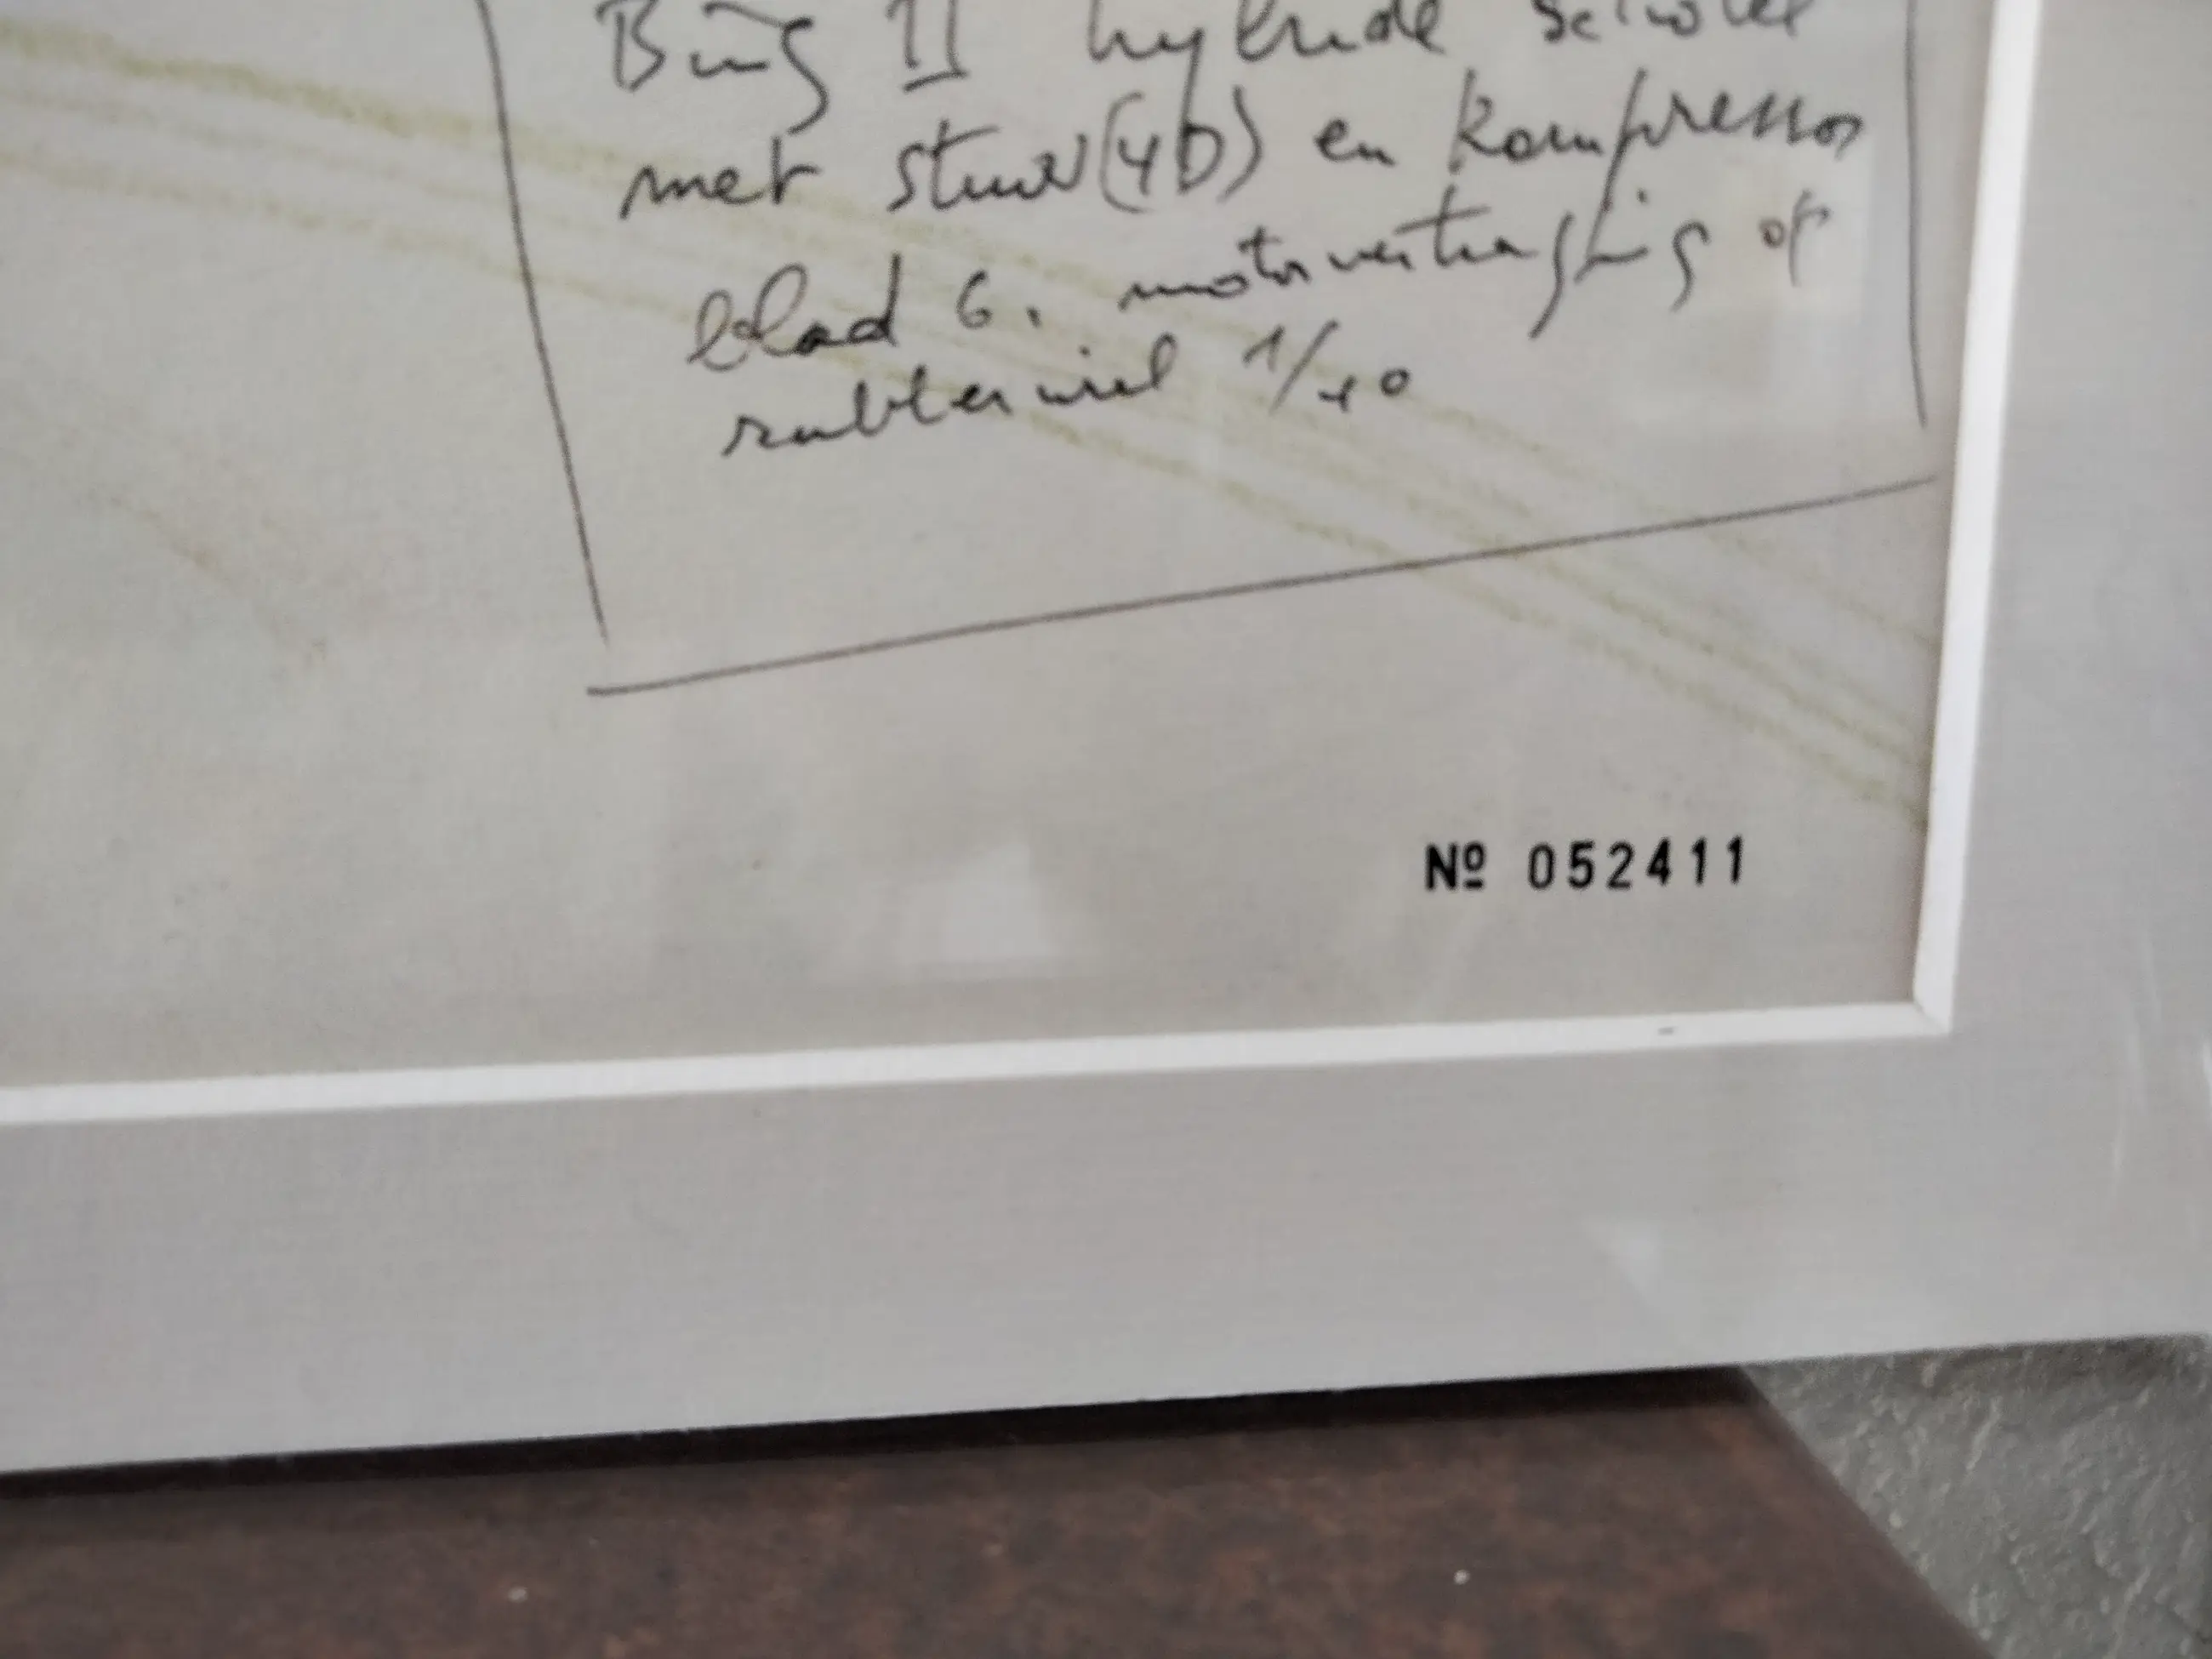 Bing II hybride
met stuur(4b) en Kompressor
blad 6. motorvertraging op
rubberwiel 1/40
Nº 052411